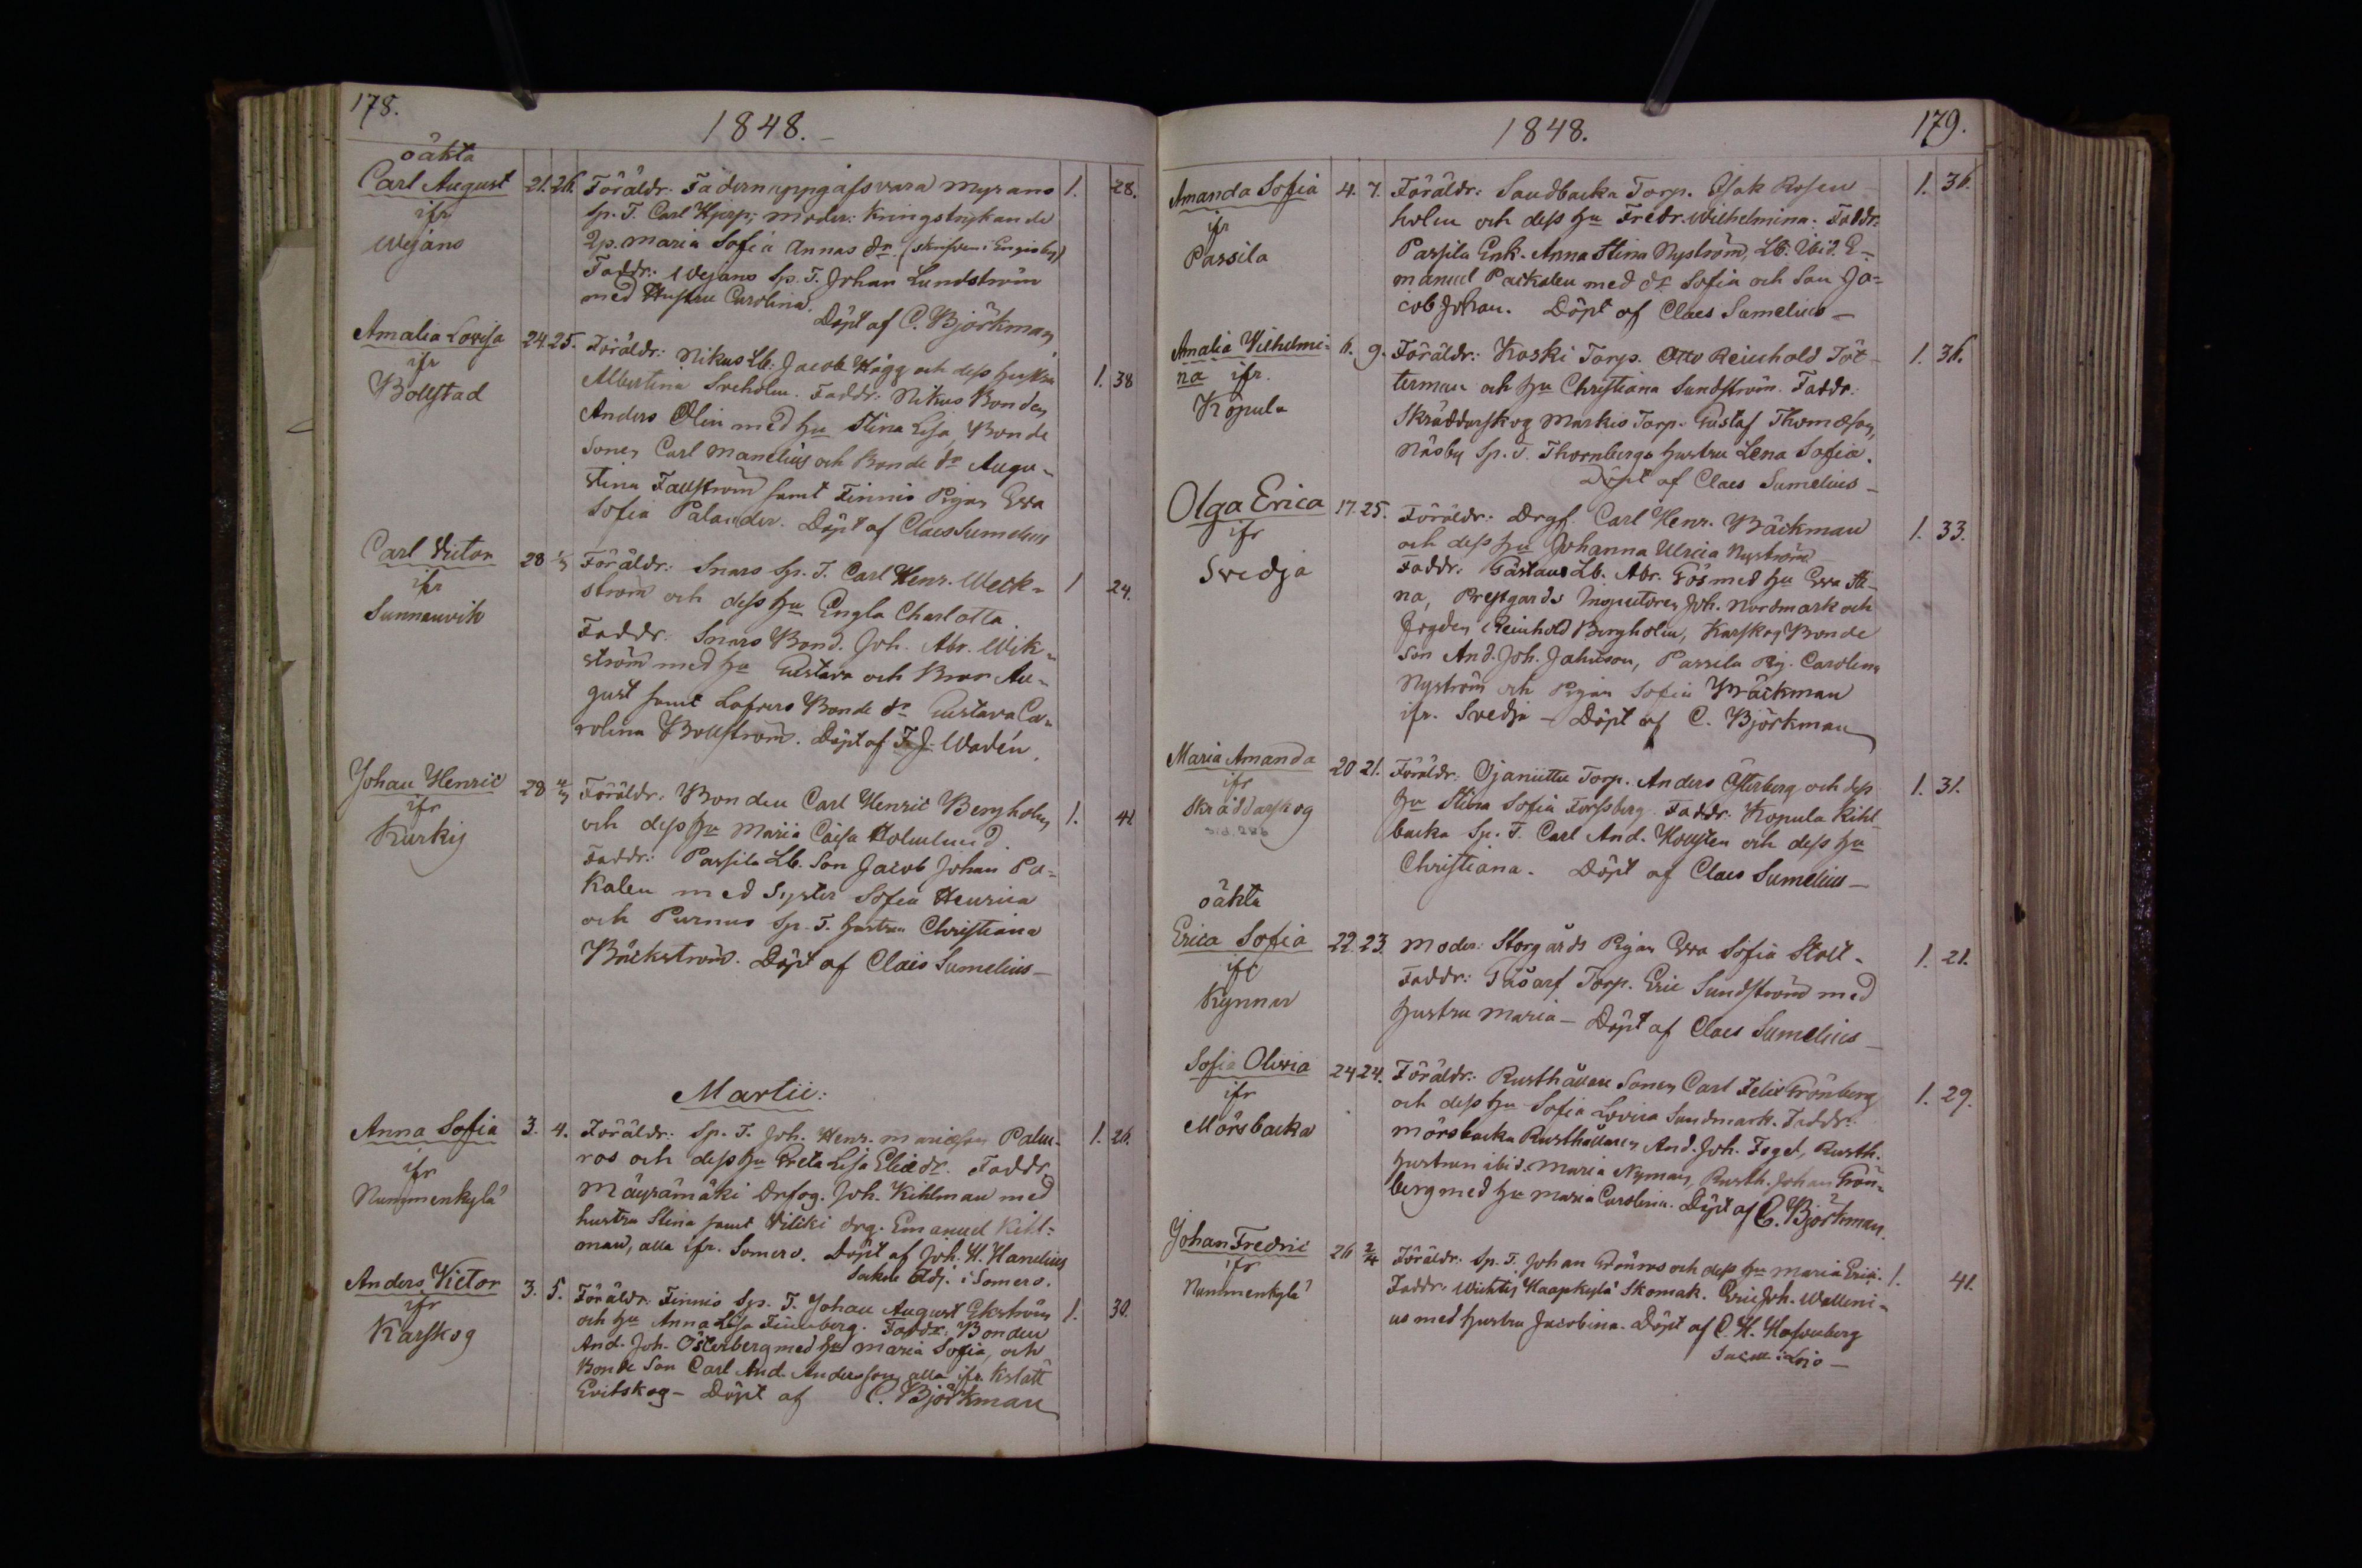 178.
1848.
oäkta
Carl August
ifr
Wejans
21. 26. Föräldr: Fadern uppgafs vara Myrans 1. 28.
Sp. T. Carl Hjerp; moder: Kringstrykande
Qp. Maria Sofia Annas dr. (skrifven i Engisby)
Faddr: Wejans Sp. T. Johan Lundström
med Hustru Carolina.
Döpt af C. Björkman
Amalia Lovisa
ifr
Bollstad
24. 25. Föräldr: Nikus Lb. Jacob Hägg och dess hustru
Albertina Sveholm. Faddr: Nikus Bonden 1. 38
Anders Olin med hu Stina Lisa, Bonde
Sonen Carl Manelius och Bonde dr Augu-
stina Fallström samt Finnis Pigan Eva
Sofia Palander. Döpt af Claes Sumelius
Carl Victor
ifr
Sunnanvik
28 1/3 Föräldr: Snars Sp. T. Carl Henr. Weck- 1 24.
ström och dess hu Engla Charlotta.
Faddr: Snars Bond. Joh. Abr. Wik-
ström med hu Gustava och Bror Au-
gust samt Lafvers Bonde dr Gustava Ca-
rolina Bollström. Döpt af F. J. Wadén.
Johan Henric
ifr
Kurkis
28 4/3 Föräldr: Bonden Carl Henric Bergholm 1. 41
och dess hu Maria Caisa Holmlund.
Faddr: Passila Lb. Son Jacob Johan Pa-
kalen med Syster Sofia Henrica
och Purnus Sp. T. hustru Christiana
Bäckström. Döpt af Claes Sumelius
Martii:
Anna Sofia
ifr
Nummenkylä
3. 4. Föräldr: Sp. T. Joh. Henr. Mariæson Palm- 1. 26.
ros och dess hu Greta Lisa Eliædr. Faddr.
Mäyrämäki Drfog. Joh. Kihlman med
hustru Stina samt Viliki drg. Emanuel Kihl-
man, alla ifr. Somero. Döpt af Joh. H. Hanelius
Sockne Adj. i Somero.
Anders Victor
ifr
Karskog
3. 5. Föräldr: Finnis Sp. T. Johan August Ekström 1. 30.
och hu Anna Lisa Finnberg. Faddr: Bonden
And. Joh. Österberg med hu Maria Sofia, och
Bonde Son Carl And. Andersson, alla ifr. Kslätt
Evitskog - Döpt af C. Björkman
1848.
179.
Amanda Sofia
ifr
Passila
4. 7. Föräldr: Sandbacka Torp. Isak Rosen- 1. 36.
holm och dess hu Fredr. Wilhelmina. Faddr:
Passila Enk. Anna Stina Nyström, Lb. Ibid. E-
manuel Packalen med dr Sofia och Son Ja-
cob Johan. Döpt af Claes Sumelius
Amalia Wilhelmi-
na ifr.
Köpula
6. 9. Föräldr: Koski Torp. Otto Reinhold Töt- 1. 36.
terman och hu Christiana Sundström. Faddr:
Skräddarskog Markis Torp. Gustaf Thomæson,
Näsby Sp. T. Thornbergs hustru Lena Sofia.
Döpt af Claes Sumelius
Olga Erica
ifr
Svedja
17. 25. Föräldr: Drgf. Carl Henr. Bäckman 1. 33.
och dess hu Johanna Ulrica Nyström
Faddr: Gästans Lb. Abr. Gös med hu Eva Sti-
na, Prestgårds Inspectoren Joh. Nordmark och
fogden Reinhold Bergholm, Karskog Bonde
Son And. Joh. Johnson, Passila Pig. Carolina
Nyström och Pigan Sofia Bäckman
ifr. Svedja - Döpt af C. Björkman
Maria Amanda
ifr
Skräddarskog
20 21. Föräldr: Ojaniittu Torp. Anders Österberg och dess 1. 31.
hu Stina Sofia Forssberg. Faddr: Kopula Kihl-
backa Sp. T. Carl And. Hollsten och dess hu
Christiana. Döpt af Claes Sumelius
oäkta
Erica Sofia
ifr
Kynnar
22. 23. Moder: Storgårds Pigan Eva Sofia Stolt. 1. 21.
Faddr: Torp. Eric Sundström med
hustru Maria - Döpt af Claes Sumelius
Sofia Olivia
ifr
Mörsbacka
24 24. Föräldr: Rusthållare Sonen Carl Felix Grönberg 1. 29.
och dess hu Sofia Lovisa Sundmark. Faddr:
Mörsbacka Rusthållaren And. Joh. Fogel, Rusth.
hustrun ibid. Maria Nyman, Rusth. Johan Grön-
berg med hu Maria Carolina. Döpt af C. Björkman.
Johan Fredric
ifr
Nummenkylä
26 2/4 Föräldr: Sp. T. Johan Grönroos och dess hu Maria Eric. 1. 41.
Faddr: Wichtis Haapkylä Skomak. Eric Joh. Walleni-
us med hustru Jacobina. Döpt af C. H. Hasenberg
Sacell: i Lojo